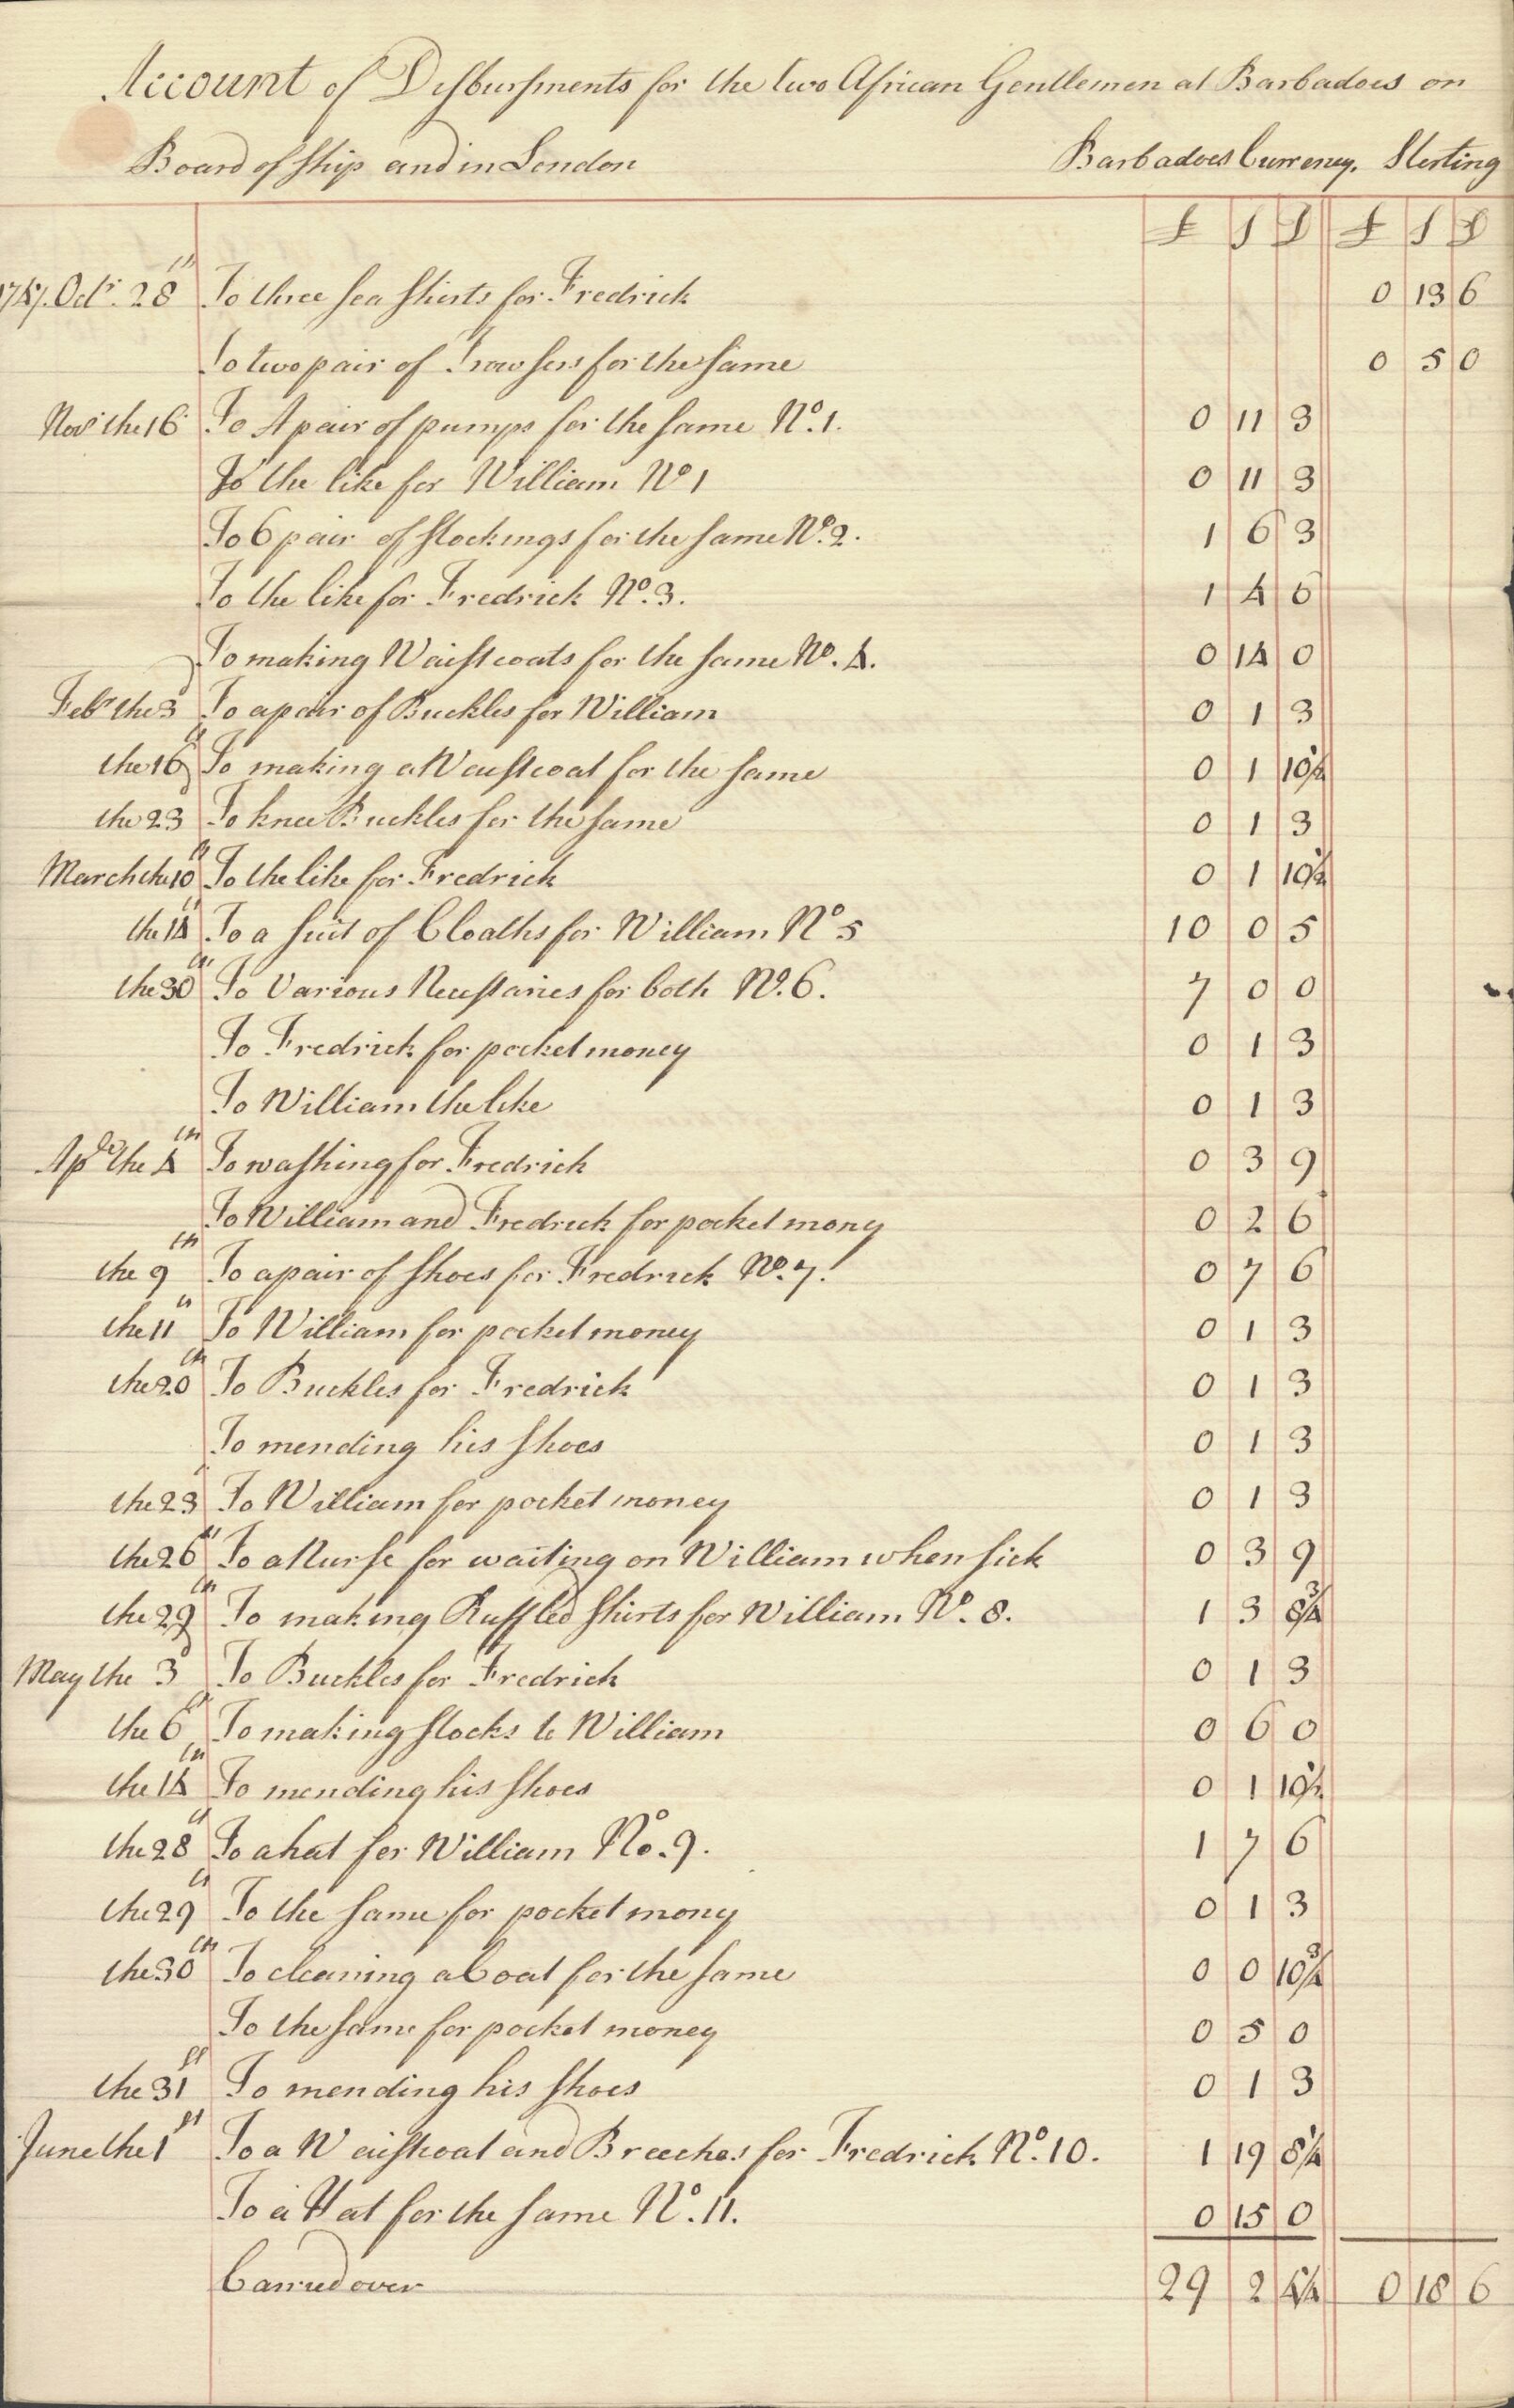 Account of Disbursments for the two African Gentlemen at Barbadoes on
Board of Ship and in London Barbadoes Currency. Sterling
£ S D £ S D
Octr. 28th To three sea Shirts for Fredrick 0 13 6
To two pair of Trowsers for the same 0 5 0
Novr the 16 To A pair of pumps for the same No. 1. 0 11 3
To the like for William No 1 0 11 3
To 6 pair of stockings for the same No. 2. 1 6 3
To the like for Fredrick No. 3. 1 4 6
To making Waistcoats for the same No. 4. 0 14 0
Febr the 3d To a pair of Buckles for William 0 1 3
the 16th To making a Waistcoat for the same 0 1 10½
the 23d To knee Buckles for the same 0 1 3
March the 10th To the like for Fredrick 0 1 10½
the 14th To a suit of Cloaths for William No 5 10 0 5
the 30th To Various Necessaries for both No. 6. 7 0 0
To Fredrick for pocket money 0 1 3
To William the like 0 1 3
Aple the 4th To washing for Fredrick 0 3 9
To William and Fredrick for pocket mony 0 2 6
the 9th To a pair of Shoes for Fredrick No. 7. 0 7 6
the 11th To William for pocket money 0 1 3
the 20th To Buckles for Fredrick 0 1 3
To mending his Shoes 0 1 3
the 23 To William for pocket money 0 1 3
the 26th To a Nurse for waiting on William when sick 0 3 9
the 29th To making Ruffled Shirts for William No. 8. 1 3 8¾
May the 3d To Buckles for Fredrick 0 1 3
the 6th To making stocks to William 0 6 0
the 14th To mending his Shoes 0 1 10½
the 28th To a hat for William No. 9. 1 7 6
the 29th To the same for pocket mony 0 1 3
the 30th To cleaning a Coat for the same 0 0 10¾
To the same for pocket money 0 5 0
the 31st To mending his Shoes 0 1 3
June the 1st To a Waistcoat and Breeches for Fredrick No. 10. 1 19 8¼
To a Hat for the same No. 11. 0 15 0
Carried over 29 2 4¼ 0 18 6